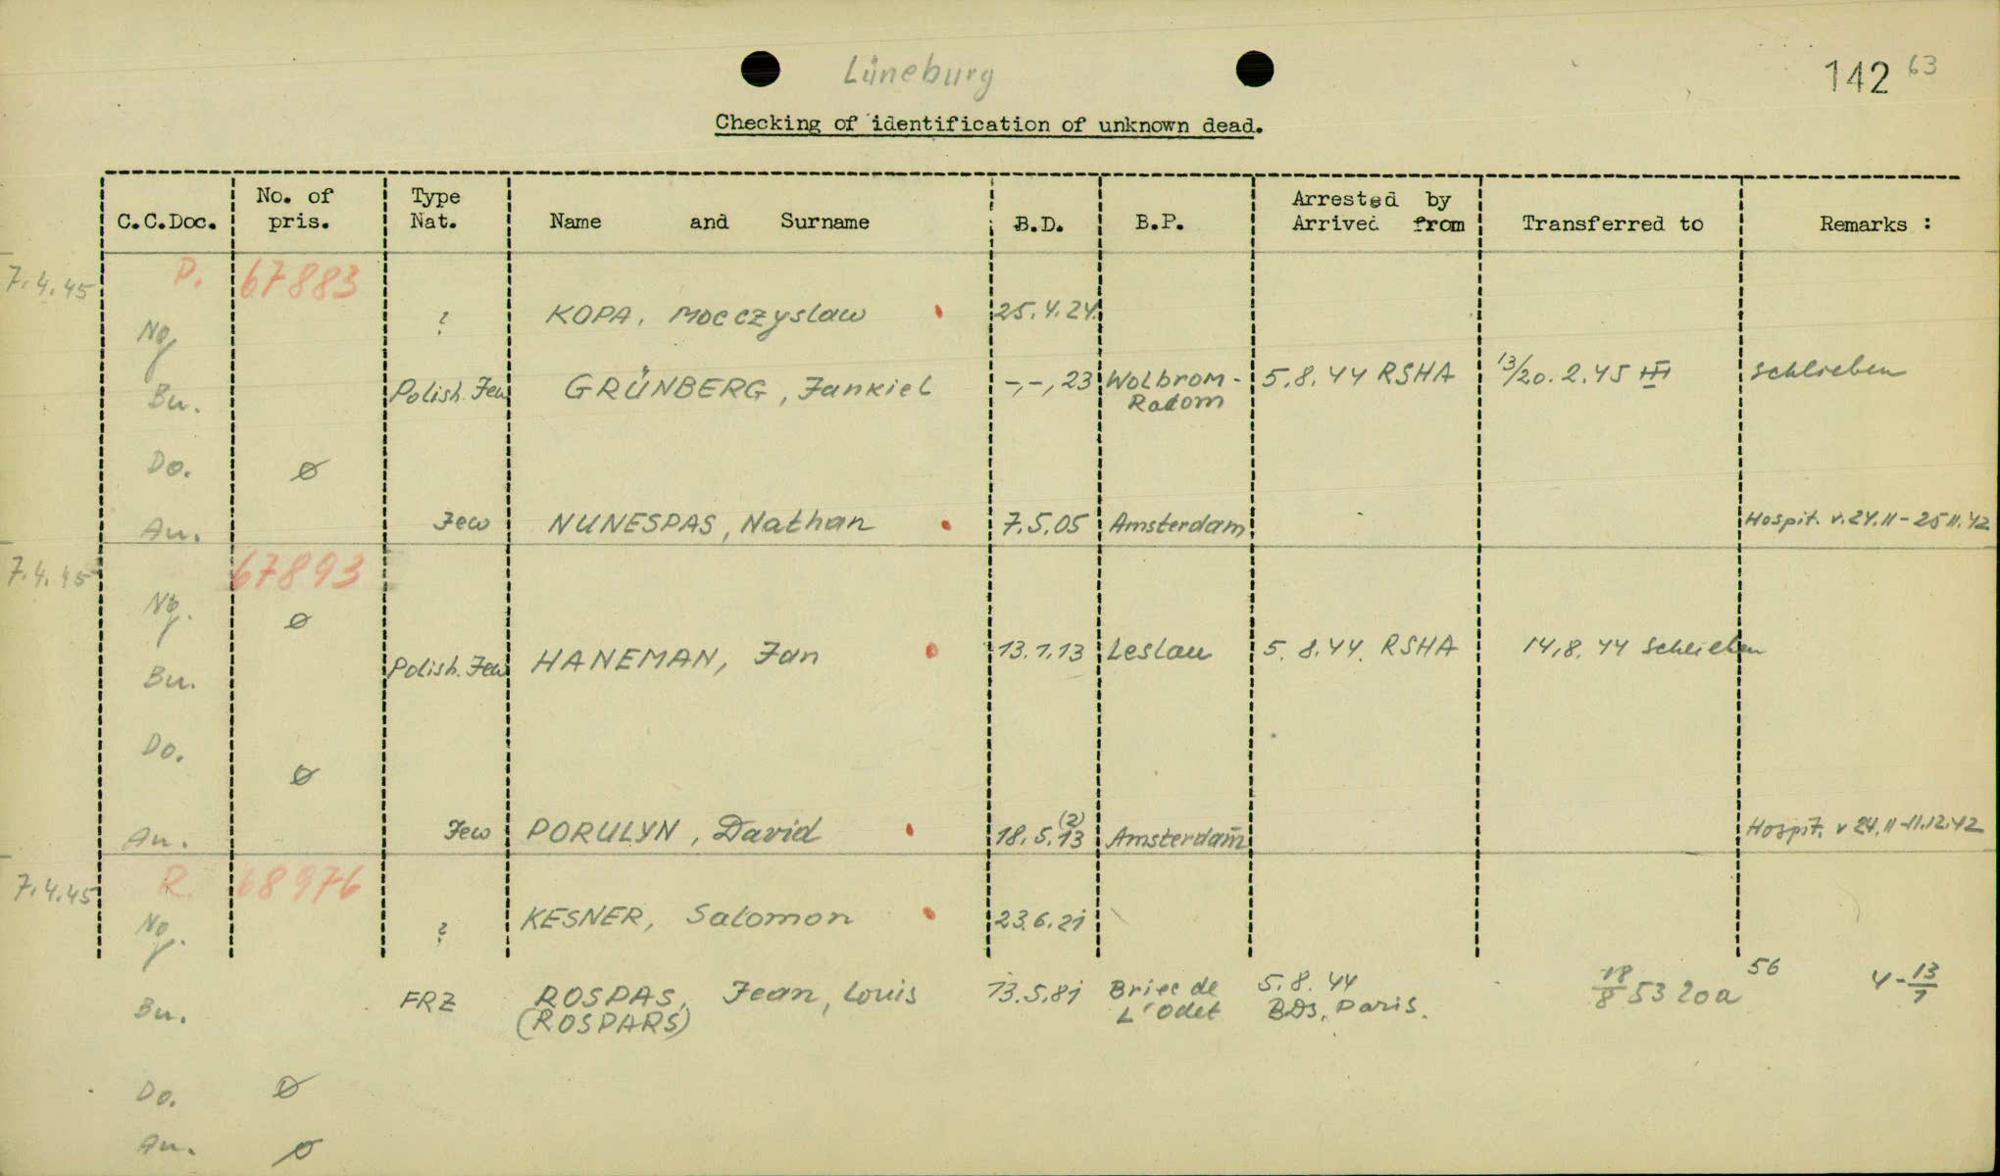 Lüneburg
142 63
Checking of identification of unknown dead.
C.C.Doc. No. of pris. Type Nat. Name and Surname B.D. B.P. Arrested by Arrived from Transferred to Remarks :
7.4.45 P. 67883
Ng ? KOPA, Mocczyslaw 25.4.24.
Bu. Polish.Jew GRÜNBERG, Jankiel -,-,23 Wolbrom- 5.8.44 RSHA 13/20.2.45 III Schlieben
Radom
Do. ø
Au. Jew NUNESPAS, Nathan 7.5.05 Amsterdam Hospit. v. 24.11-25 11.42
7.4.45 67893
Ng. ø
Bu. Polish.Jew HANEMAN, Jan 13.1.13 Leslau 5.8.44. RSHA 14,8.44 Schlieben
Do. ø
Au. Jew PORULYN, David 18.5.13 (2) Amsterdam Hospit. v 24.11-11.12.42
7.4.45 R. 68976
Ng. ? KESNER, Salomon 23.6.21
Bu. FRZ ROSPAS, Jean, Louis 13.5.81 Briec de 5.8.44 18/8 53 20a 56 4-13/1
(ROSPARS) L'Odet BDS, Paris.
Do. ø
Au. ø